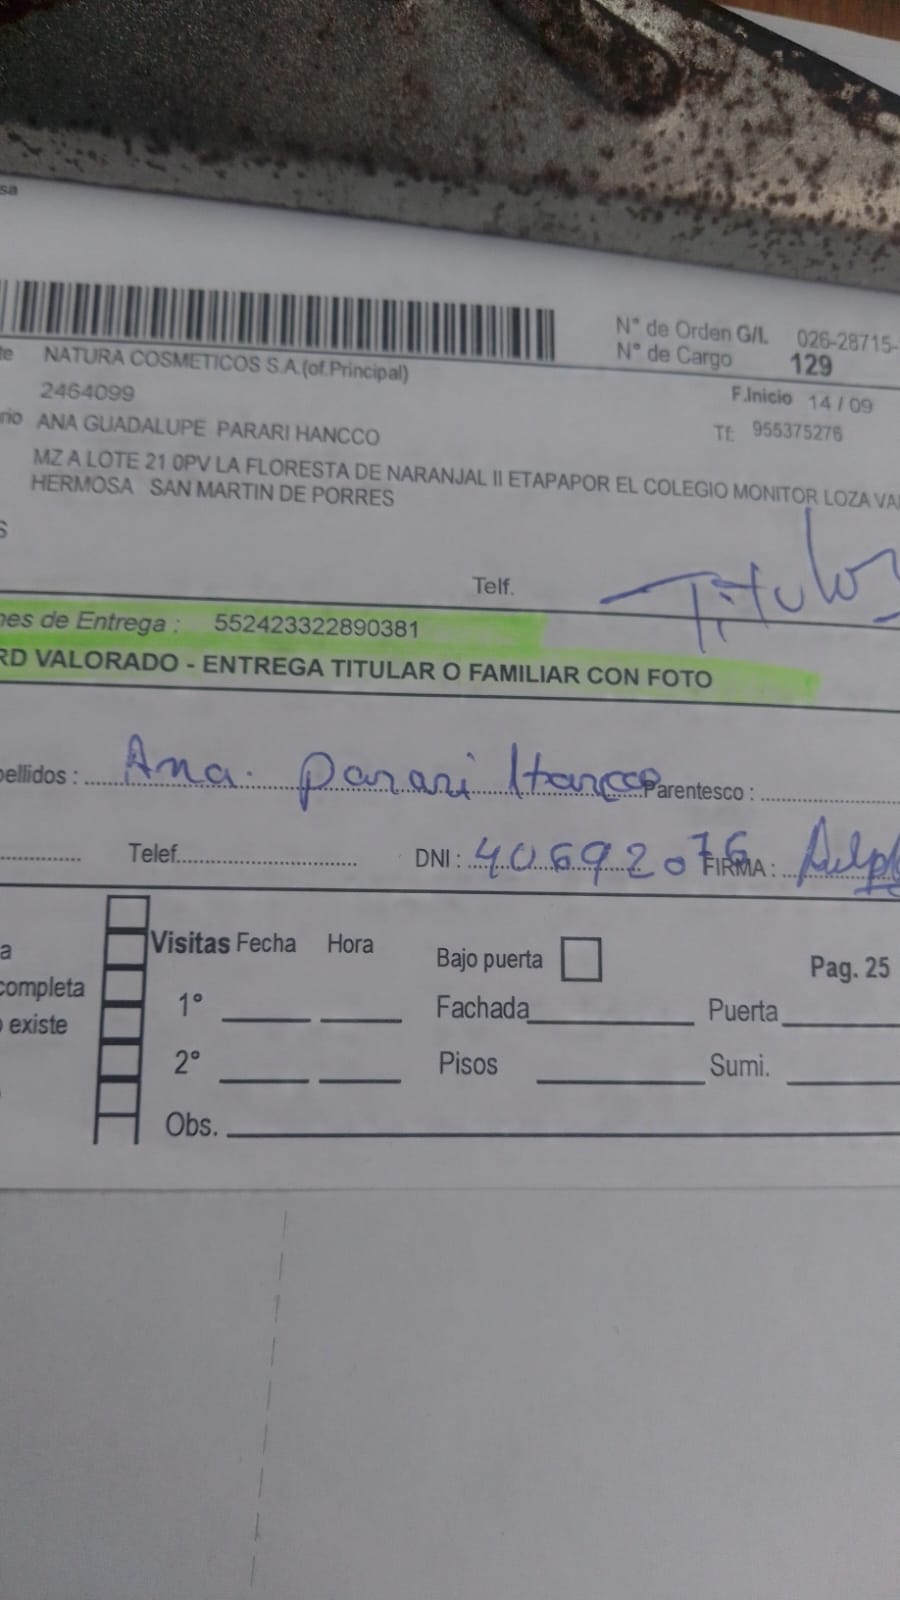 sa
N° de Orden G/I. 026-28715-
N° de Cargo 129
te NATURA COSMETICOS S.A.(of.Principal)
2464099 F.Inicio 14 / 09
rio ANA GUADALUPE PARARI HANCCO Tf: 955375276
MZ A LOTE 21 0PV LA FLORESTA DE NARANJAL II ETAPAPOR EL COLEGIO MONITOR LOZA VA
HERMOSA SAN MARTIN DE PORRES
S
Telf. Titular
nes de Entrega : 552423322890381
RD VALORADO - ENTREGA TITULAR O FAMILIAR CON FOTO
pellidos : Ana. Parari Hancco Parentesco :
Telef. DNI : 40692076 FIRMA :
Visitas Fecha Hora Bajo puerta Pag. 25
a
completa 1° Fachada Puerta
o existe
2° Pisos Sumi.
Obs.